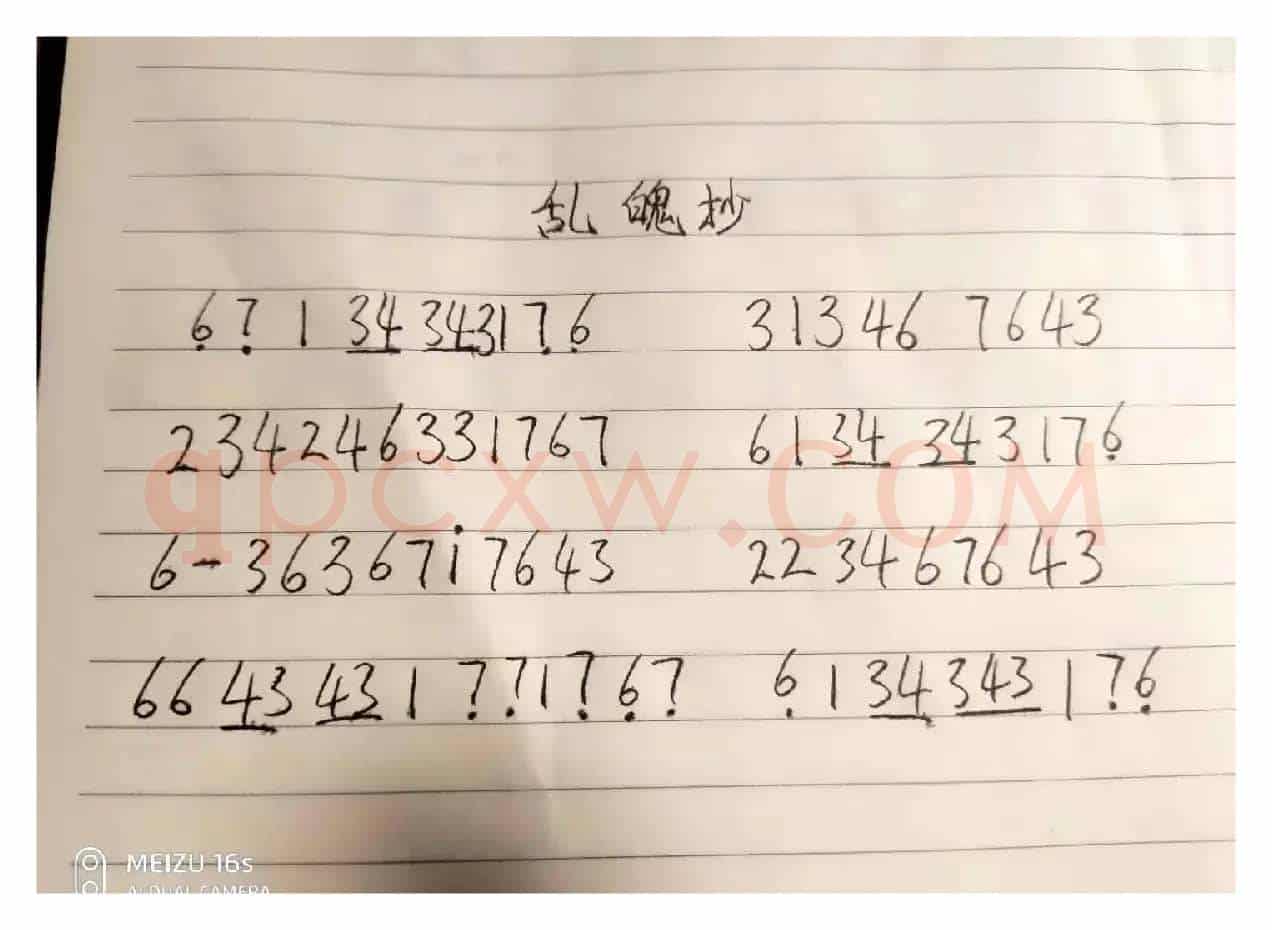 乱魄抄
6̣ 7̣ 1 34 34317̣6̣ 31346 7643
234246331767 6134 343176̣
6-363671̇7643 223467643
66 43 43 1 7̣7̣17̣6̣7̣ 6̣1343431 7̣6̣
qpcxw.COM
MEIZU 16s
AI DUAL CAMERA